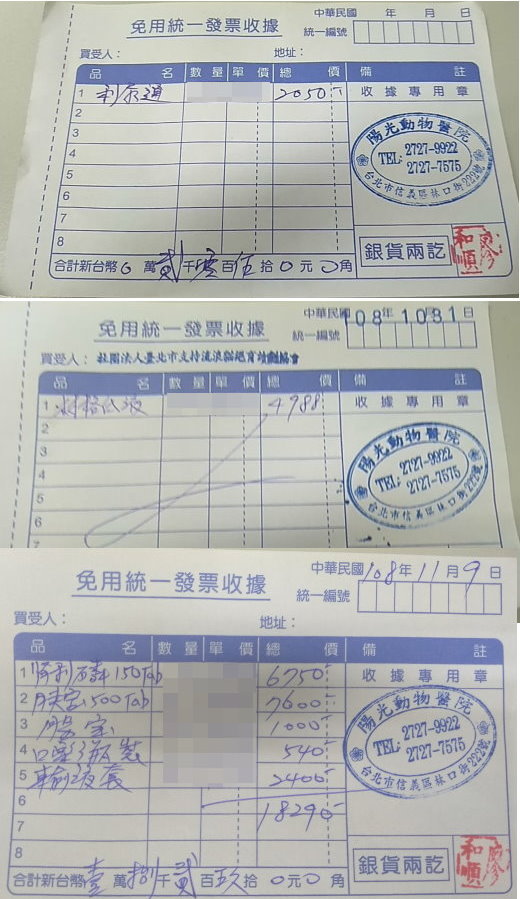 免用統一發票收據
中華民國 年 月 日
統一編號
買受人： 地址：
品 名 數量 單 價 總 價 備 註
1 利尿通 2050 收據專用章
2
3
4
5
6
7
8
陽光動物醫院
TEL: 2727-9922
2727-7575
台北市信義區林口街222號
銀貨兩訖
和順
合計新台幣0萬貳千零百伍拾0元0角
免用統一發票收據
中華民國108年1031日
統一編號
買受人： 社團法人臺北市支持流浪貓絕育計劃協會
品 名 數量 單 價 總 價 備 註
1 4988 收據專用章
2
3
4
5
6
7
陽光動物醫院
TEL: 2727-9922
2727-7575
台北市信義區林口街222號
免用統一發票收據
中華民國108年11月9日
統一編號
買受人： 地址：
品 名 數量 單 價 總 價 備 註
1 腎利磷150Tab 6750 收據專用章
2 500Tab 7600
3 1000
4 540
5 輸液 2400
6 18290
7
8
陽光動物醫院
TEL: 2727-9922
2727-7575
台北市信義區林口街222號
銀貨兩訖
和順
合計新台幣壹萬捌千貳百玖拾0元0角